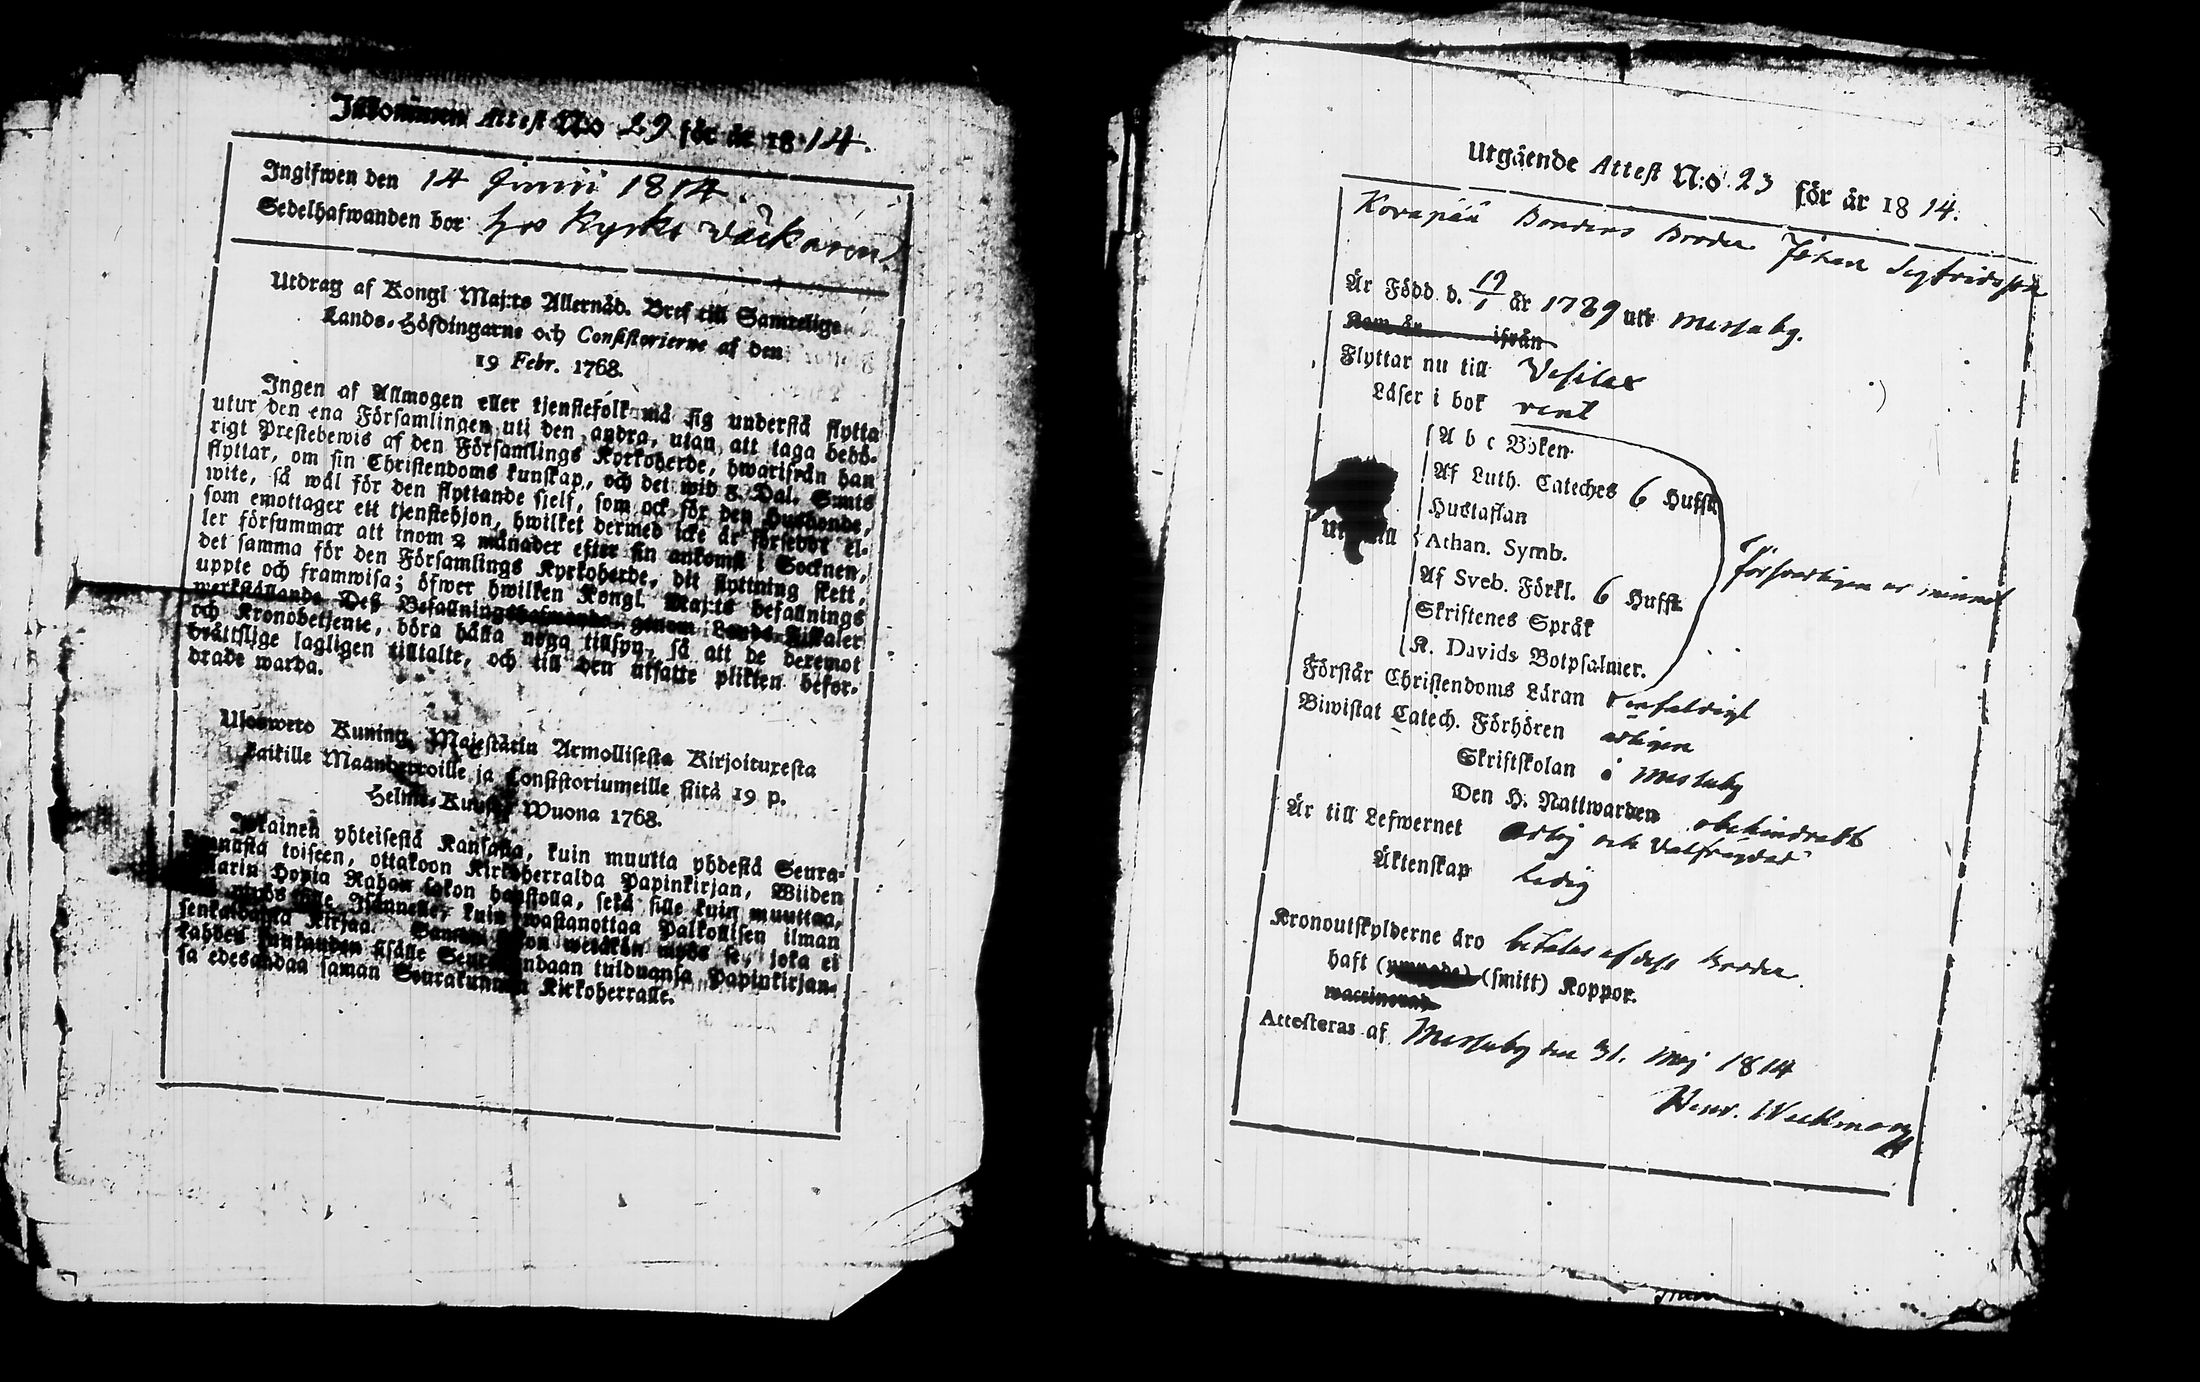 Inkommen Attest No 29 för år 1814.
Ingifwen den 14 Junii 1814.
Sedelhafwanden bor hos Kyrko Väckaren
Utdrag af Kongl Maj:ts Allernåd. Bref till Samtelige
Lands-Höfdingarne och Consistorierne af den
19 Febr. 1768.
Ingen af Allmogen eller tjenstefolk må sig understå flytta
utur den ena Församlingen uti den andra, utan att taga behö-
rigt Prestebewis af den Församlings Kyrkoherde, hwarifrån han
flyttar, om sin Christendoms kunskap, och det wid 5 Dal. Smts
wite, så wäl för den flyttande sielf, som ock för den Husbonde,
som emottager ett tjenstehjon, hwilket dermed icke är försedt el-
ler försummar att inom 2 månader efter sin ankomst i Socknen,
det samma för den Församlings Kyrkoherde, dit flyttning skett,
uppte och framwisa; öfwer hwilken Kongl. Maj:ts befallnings
werkställande Deß Befallningshafwande genom Lands-Fiskaler
och Kronobetjente, böra hålla noga tillsyn, så att de deremot
bråttslige lagligen tilltalte, och till den utsatte plikten befor-
drade warda.
Ulosweto Kuning. Majestätin Armollisesta Kirjoituxesta
kaikille Maanherroille ja Consistoriumeille siitä 19 p.
Helmi-Kuusa Wuona 1768.
Jokainen yhteisestä Kansasta, kuin muutta yhdestä Seura-
kunnasta toiseen, ottakoon Kirkoherralda Papinkirjan, Wiiden
Talarin Hopia Rahan sakon haastolla, sekä sille kuin muuttaa,
että myös sille Isännelle, kuin wastanottaa Palkollisen ilman
senkaldaista Kirjaa. Saman sakon wetäkän myös se, joka ei
kahden kuukauden sisälle Seurakundaan tulduansa Papinkirjan-
sa edesandaa saman Seurakunnan Kirkoherralle.
Utgående Attest N:o 23 för år 1814.
Korapää Bondens Broder Johan Sigfridsson
Är Född d. 19/1 år 1789 uti Messuby.
Kom år ifrån
Flyttar nu till Vesilax
Läser i bok rent
A b c Boken
Af Luth. Cateches 6 Hufst.
Hustaflan
Utantill Athan. Symb.
Af Sveb. Förkl. 6 Hufst.
Skriftenes Språk
K. Davids Botpsalmer.
försvarligen ur minnet
Förstår Christendoms Läran enfaldigt
Biwistat Catech. Förhören årligen
Skriftskolan i Messuby
Den H. Nattwarden obehindradt
Är till Lefwernet Ärlig och Välfrägdad
Äktenskap Ledig
Kronoutskylderne äro betalas af dess Broder
haft (smitt) Koppor.
waccinerad
Attesteras af Messuby den 31. Maj 1814
Henr. Wechman